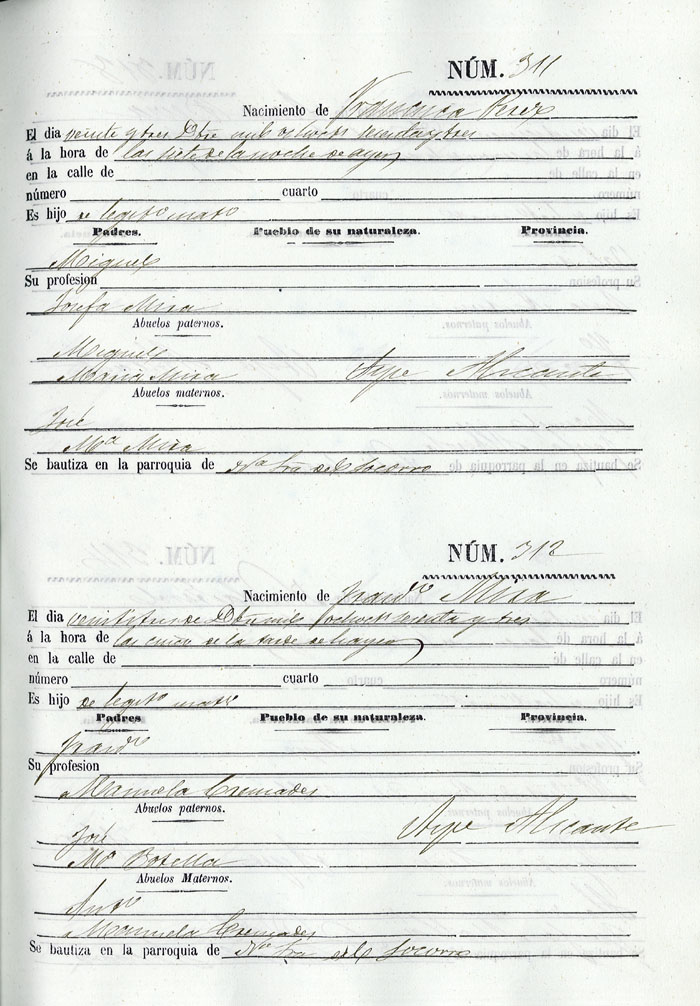 NÚM. 311
Nacimiento de Francisca Perez
El dia veinte y tres Dbre mil ochocts sesenta y tres
á la hora de las siete de la noche de ayer
en la calle de
número cuarto
Es hijo de legitº matº
Padres. Pueblo de su naturaleza. Provincia.
Miguel
Su profesion
Josefa Mira
Abuelos paternos.
Miguel
Maria Mira Aspe Alicante
Abuelos maternos.
José
Mª Mira
Se bautiza en la parroquia de Nª Sra del Socorro
NÚM. 312
Nacimiento de Mira
El dia veintitres de Dbre mil ochocts sesenta y tres
á la hora de las cinco de la tarde de hayer
en la calle de
número cuarto
Es hijo de legitº matº
Padres Pueblo de su naturaleza. Provincia.
Su profesion
Manuela Cremades
Abuelos paternos.
José Aspe Alicante
Mª Botella
Abuelos Maternos.
Antº
Manuela Cremades
Se bautiza en la parroquia de Nª Sra del Socorro